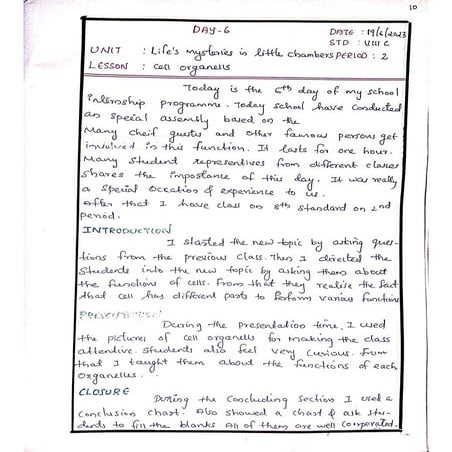 10
DAY-6
DATE : 19/6/2023
STD : VIII C
UNIT : Life's mysteries in little chambers PERIOD : 2
LESSON : cell organells
Today is the 6th day of my school
internship programme. Today school have conducted
an special assembly based on the
Many cheif guests and other famous persons get
involved in this function. It lasts for one hour.
Many student representives from different classes
shares the importance of this day. It was really
a special occation & experience to us.
After that I have class on 8th standard on 2nd
period.
INTRODUCTION
I started the new topic by asking ques-
tions from the previous class. Then I directed the
students into the new topic by asking them about
the functions of cells. From that they realise the fact
that cell has different parts to perform various functions
PRESENTATION
During the presentation time, I used
the pictures of cell organells for making the class
attentive. Students also feel very curious. From
that I taught them about the functions of each
organelles.
CLOSURE
During the concluding section I ask a
conclusion chart. Also showed a chart & ask stu-
dents to fill the blanks. All of them are well cooperated.